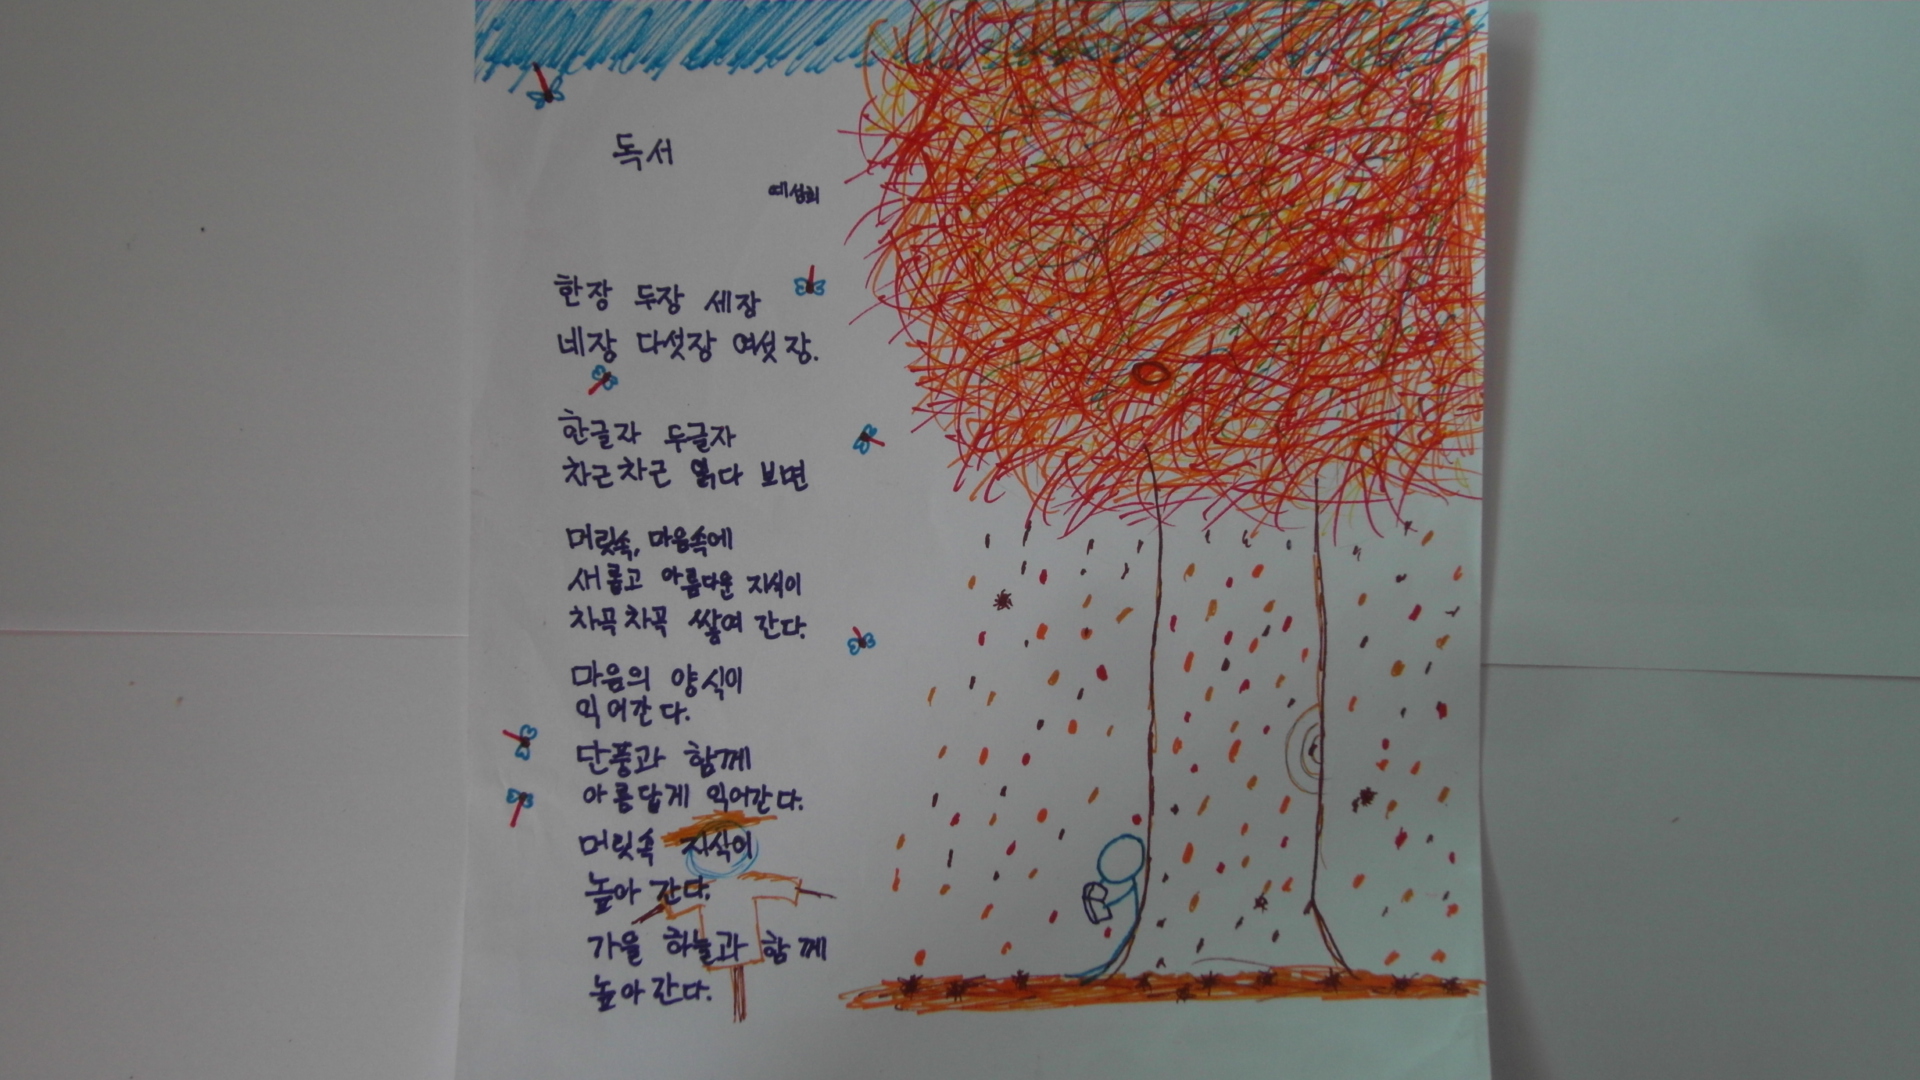 독서
예섭희
한장 두장 세장
네장 다섯장 여섯장.
한글자 두글자
차근차근 읽다 보면
머릿속, 마음속에
새롭고 아름다운 지식이
차곡차곡 쌓여 간다.
마음의 양식이
익어간다.
단풍과 함께
아름답게 익어간다.
머릿속 지식이
높아 간다.
가을 하늘과 함께
높아 간다.